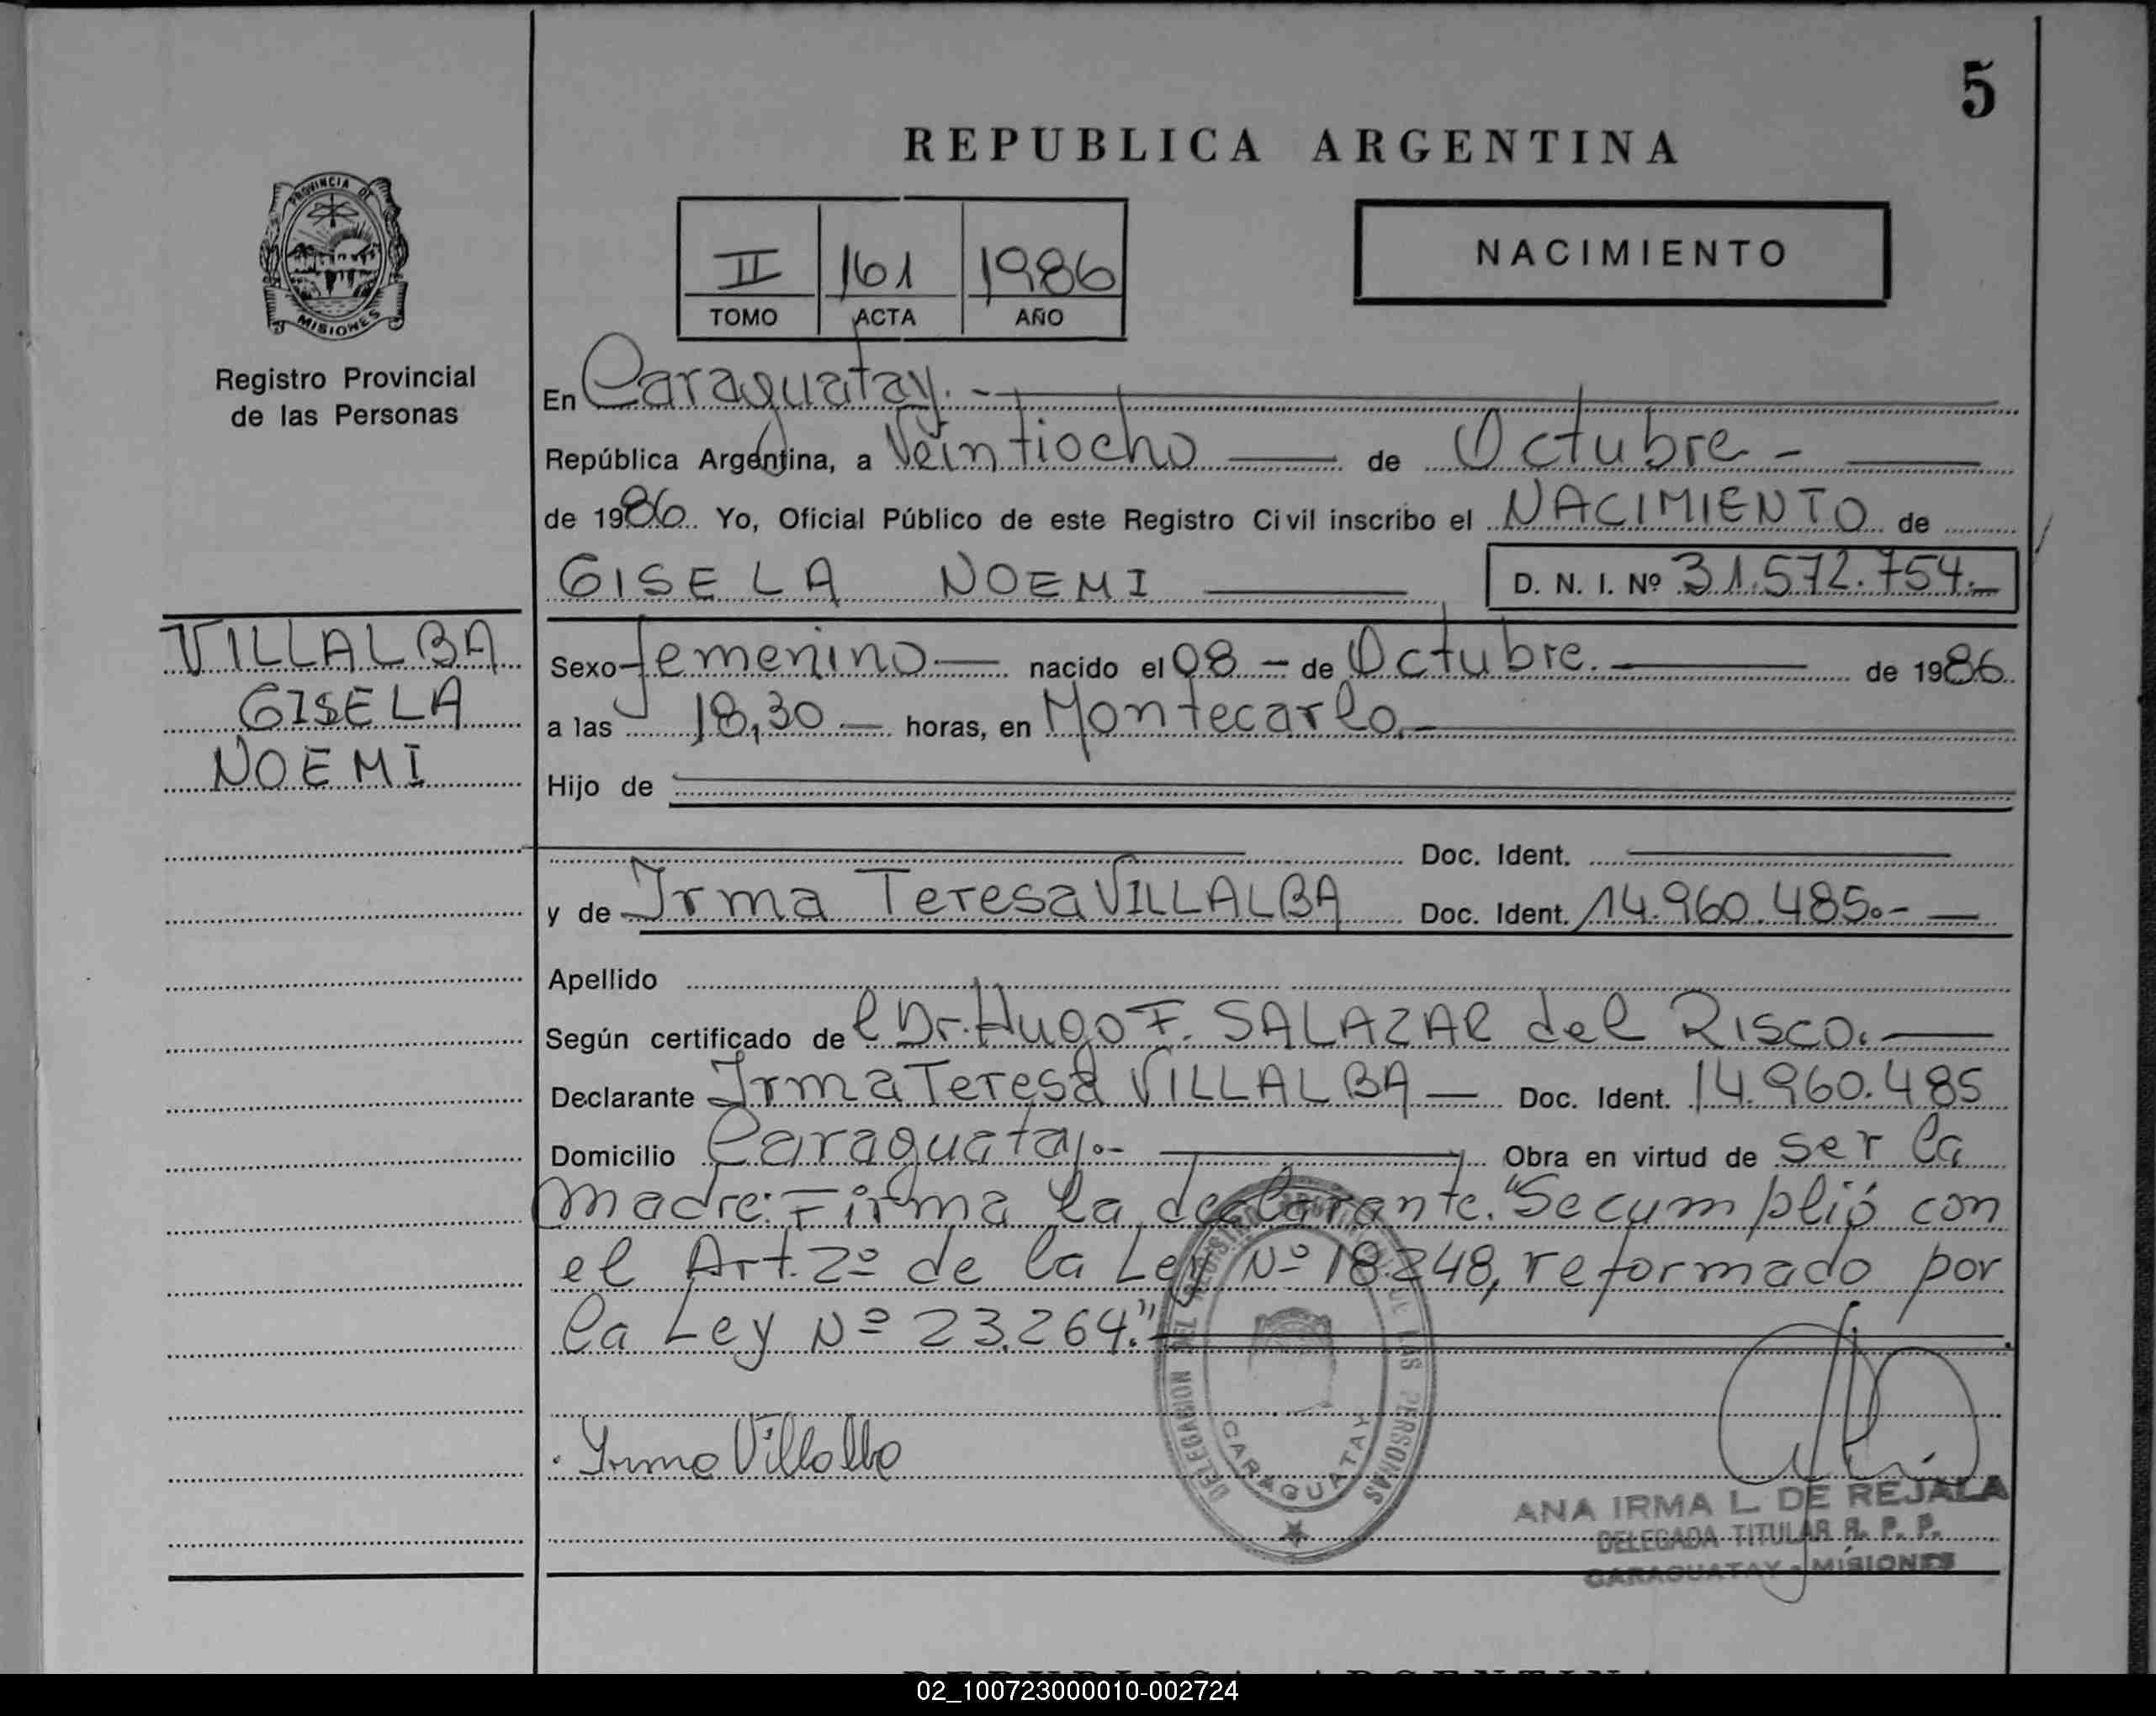 5
REPUBLICA ARGENTINA
PROVINCIA DE
MISIONES
Registro Provincial
de las Personas
II 161 1986
TOMO ACTA AÑO
NACIMIENTO
En Caraguatay.-
República Argentina, a Veintiocho de Octubre-
de 1986. Yo, Oficial Público de este Registro Civil inscribo el NACIMIENTO de
GISELA NOEMI D. N. I. Nº 31.572.754.-
VILLALBA
GISELA
NOEMI
Sexo femenino nacido el 08 - de Octubre. de 1986
a las 18,30 horas, en Montecarlo.-
Hijo de
Doc. Ident.
y de Irma Teresa VILLALBA Doc. Ident. 14.960.485.-
Apellido
Según certificado de l Dr. Hugo F. SALAZAR del RISCO.
Declarante Irma Teresa VILLALBA Doc. Ident. 14.960.485
Domicilio Caraguatay.- Obra en virtud de ser la
madre: Firma la declarante. "Se cumplió con
el Art. 2º de la Ley Nº 18.248, reformado por
la Ley Nº 23.264."
Irma Villalba
DELEGACION DEL REGISTRO PROVINCIAL DE LAS PERSONAS
CARAGUATAY
ANA IRMA L. DE REJALA
DELEGADA TITULAR R. P. P.
CARAGUATAY - MISIONES
REPUBLICA ARGENTINA
02_100723000010-002724